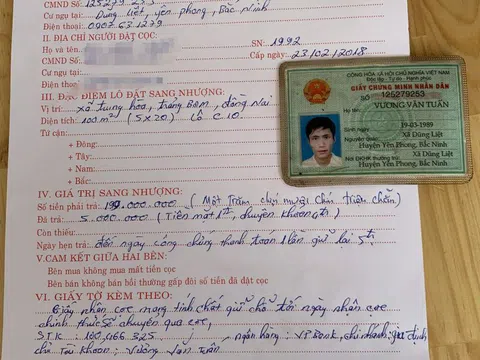 CMND Số: 125279253
Cư ngụ tại: Dũng liệt, yên phong, Bắc Ninh
Điện thoại: 0907631279
II. ĐỊA CHỈ NGƯỜI ĐẶT CỌC:
Họ và tên: SN: 1992
CMND Số: Cấp ngày: 23/02/2018
Cư ngụ tại:
Điện thoại:
III. ĐỊA ĐIỂM LÔ ĐẤT SANG NHƯỢNG:
Vị trí: xã trung hòa, trảng Bom, đồng Nai
Diện tích: 100 m² (5 x 20) Lô C10.
Tứ cận:
+ Đông:
+ Tây:
+ Nam:
+ Bắc:
IV. GIÁ TRỊ SANG NHƯỢNG:
Số tiền phải trả: 199.000.000 (Một Trăm chín mươi Chín triệu chẵn)
Đã trả: 5.000.000 (Tiền mặt 1tr, chuyển khoản 4tr)
Còn thiếu:
Ngày hẹn trả: đến ngày công chứng thanh toán 1 lần giữ lại 5tr
V. CAM KẾT GIỮA HAI BÊN:
Bên mua không mua mất tiền cọc
Bên bán không bán bồi thường gấp đôi số tiền đã đặt cọc
VI. GIẤY TỜ KÈM THEO:
Giấy nhận cọc mang tính chất giữ chỗ tới ngày nhận cọc
chính thức sẽ chuyển qua cọc,
STK: 100466325, ngân hàng: VPBank, chi nhánh: gia định
chủ Tài Khoản: Vương Văn Tuấn
CỘNG HÒA XÃ HỘI CHỦ NGHĨA VIỆT NAM
Độc lập - Tự do - Hạnh phúc
GIẤY CHỨNG MINH NHÂN DÂN
SỐ 125279253
VƯƠNG VĂN TUẤN
Sinh ngày 19-03-1989
Xã Dũng Liệt
Huyện Yên Phong, Bắc Ninh
Nơi ĐKHK thường trú: Xã Dũng Liệt
Huyện Yên Phong, Bắc Ninh